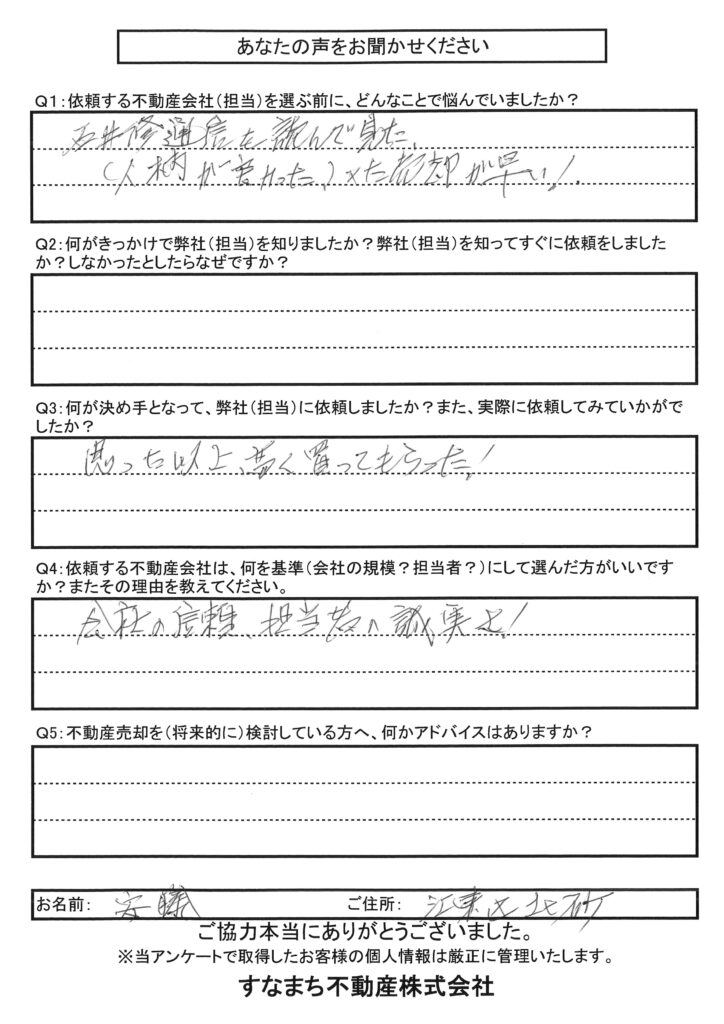 あなたの声をお聞かせください
Q1：依頼する不動産会社（担当）を選ぶ前に、どんなことで悩んでいましたか？
石井修通信を読んで見た、
（人柄が善かった、）また売却が早い！
Q2：何がきっかけで弊社（担当）を知りましたか？弊社（担当）を知ってすぐに依頼をしました
か？しなかったとしたらなぜですか？
Q3：何が決め手となって、弊社（担当）に依頼しましたか？また、実際に依頼してみていかがで
したか？
思った以上、高く買ってもらった！
Q4：依頼する不動産会社は、何を基準（会社の規模？担当者？）にして選んだ方がいいです
か？またその理由を教えてください。
会社の信頼、担当者の誠実さ！
Q5：不動産売却を（将来的に）検討している方へ、何かアドバイスはありますか？
お名前： 安藤 ご住所： 江東区北砂
ご協力本当にありがとうございました。
※当アンケートで取得したお客様の個人情報は厳正に管理いたします。
すなまち不動産株式会社